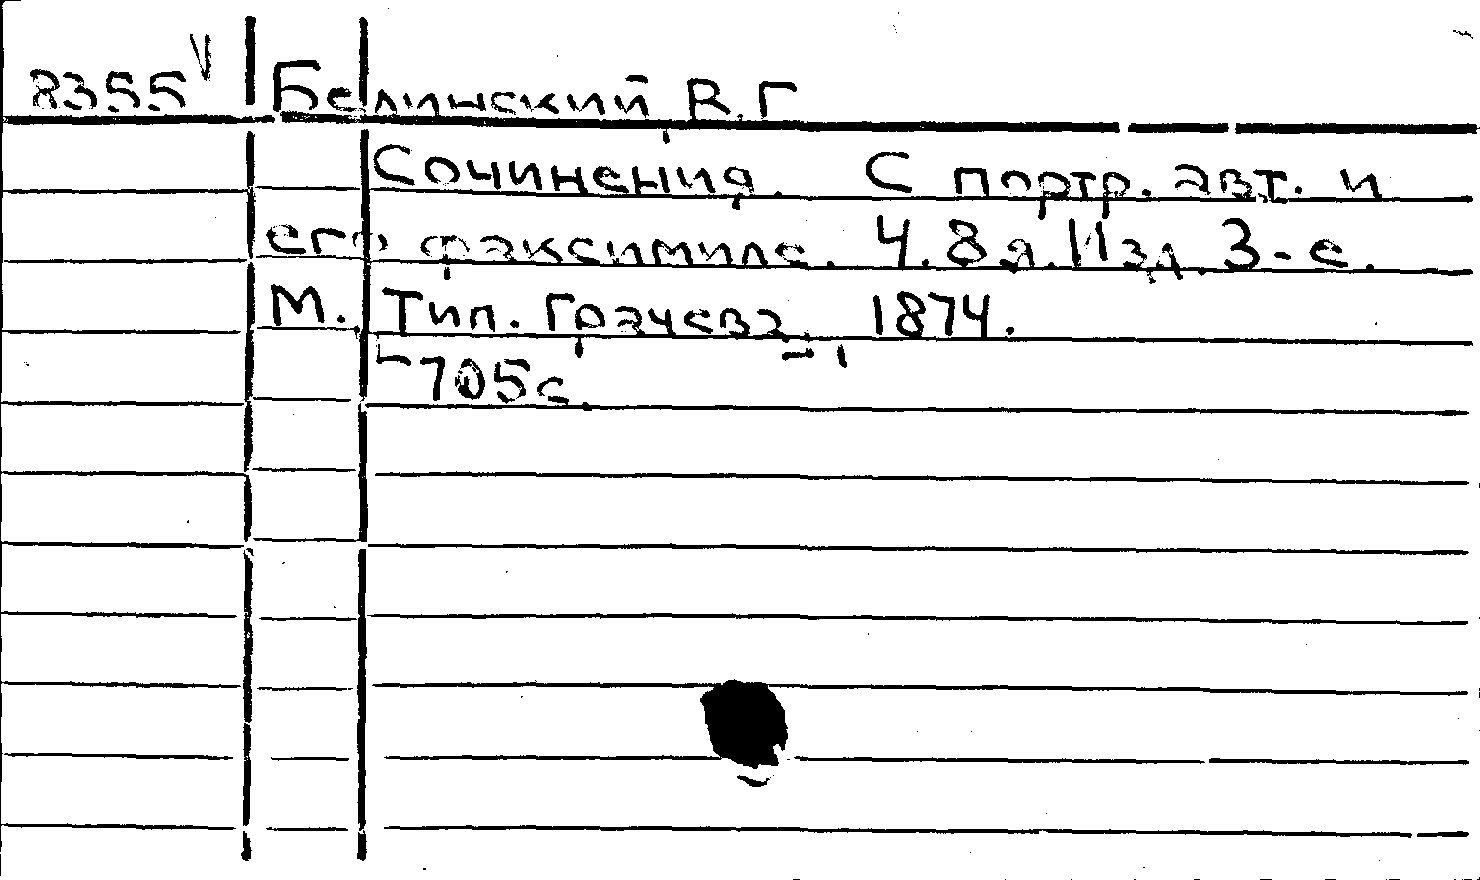 8355 V Белинский, В.Г
Сочинения. С портр. авт. и
его факсимиле. Ч.8я. Изд. 3-е.
М. Тип. Грачева, 1874.
705с.